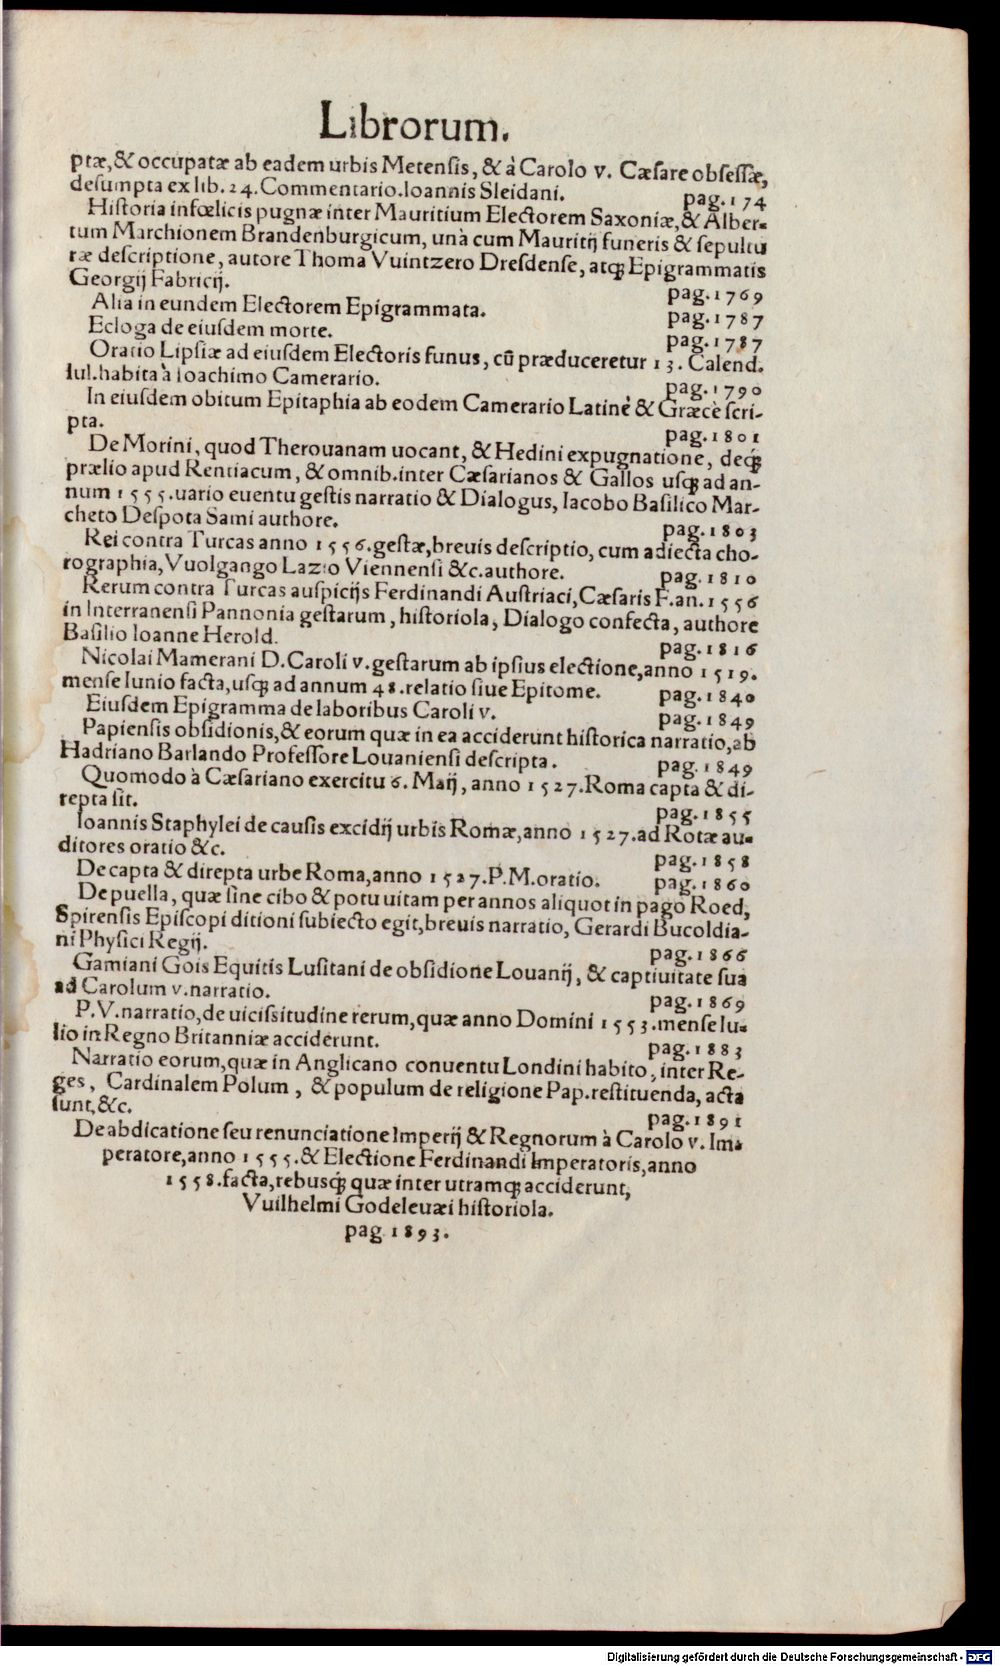 Librorum.
ptæ, & occupatæ ab eadem urbis Metensis, & à Carolo v. Cæsare obsessæ,
desumpta ex lib. 24. Commentario. Ioannis Sleidani. pag. 174
Historia infœlicis pugnæ inter Mauritium Electorem Saxoniæ, & Alber-
tum Marchionem Brandenburgicum, unà cum Mauritij funeris & sepultu
ræ descriptione, autore Thoma Vuintzero Dresdense, atq; Epigrammatis
Georgij Fabricij. pag. 1769
Alia in eundem Electorem Epigrammata. pag. 1787
Ecloga de eiusdem morte. pag. 1787
Oratio Lipsiæ ad eiusdem Electoris funus, cũ præduceretur 13. Calend.
Iul. habita à Ioachimo Camerario. pag. 1790
In eiusdem obitum Epitaphia ab eodem Camerario Latinè & Græcè scri-
pta. pag. 1801
De Morini, quod Therouanam uocant, & Hedini expugnatione, deq;
prælio apud Rentiacum, & omnib. inter Cæsarianos & Gallos usq; ad an-
num 1555. uario euentu gestis narratio & Dialogus, Iacobo Basilico Mar-
cheto Despota Sami authore. pag. 1803
Rei contra Turcas anno 1556. gestæ, breuis descriptio, cum adiecta cho-
rographia, Vuolgango Lazio Viennensi &c. authore. pag. 1810
Rerum contra Turcas auspicijs Ferdinandi Austriaci, Cæsaris F. an. 1556
in Interranensi Pannonia gestarum, historiola, Dialogo confecta, authore
Basilio Ioanne Herold. pag. 1816
Nicolai Mamerani D. Caroli v. gestarum ab ipsius electione, anno 1519.
mense Iunio facta, usq; ad annum 48. relatio siue Epitome. pag. 1840
Eiusdem Epigramma de laboribus Caroli v. pag. 1849
Papiensis obsidionis, & eorum quæ in ea acciderunt historica narratio, ab
Hadriano Barlando Professore Louaniensi descripta. pag. 1849
Quomodo à Cæsariano exercitu 6. Maij, anno 1527. Roma capta & di-
repta sit. pag. 1855
Ioannis Staphylei de causis excidij urbis Romæ, anno 1527. ad Rotæ au-
ditores oratio &c. pag. 1858
De capta & direpta urbe Roma, anno 1527. P. M. oratio. pag. 1860
De puella, quæ sine cibo & potu uitam per annos aliquot in pago Roed,
Spirensis Episcopi ditioni subiecto egit, breuis narratio, Gerardi Bucoldia-
ni Physici Regij. pag. 1866
Gamiani Gois Equitis Lusitani de obsidione Louanij, & captiuitate sua
ad Carolum v. narratio. pag. 1869
P. V. narratio, de uicissitudine rerum, quæ anno Domini 1553. mense Iu-
lio in Regno Britanniæ acciderunt. pag. 1883
Narratio eorum, quæ in Anglicano conuentu Londini habito, inter Re-
ges, Cardinalem Polum, & populum de religione Pap. restituenda, acta
sunt, &c. pag. 1891
De abdicatione seu renunciatione Imperij & Regnorum à Carolo v. Im-
peratore, anno 1555. & Electione Ferdinandi Imperatoris, anno
1558. facta, rebusq; quæ inter utramq; acciderunt,
Vuilhelmi Godeleuæi historiola.
pag 1893.
Digitalisierung gefördert durch die Deutsche Forschungsgemeinschaft - DFG